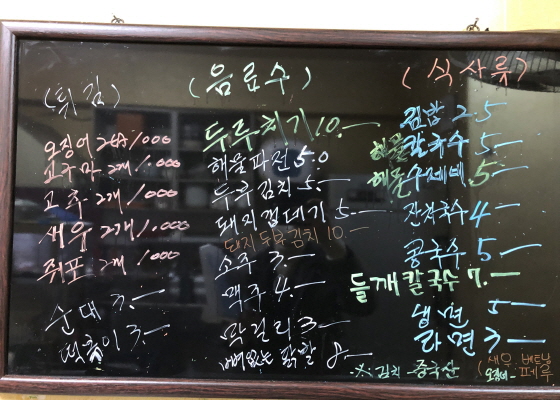 (튀김)
오징어 2개 1000
고구마 2개 1000
고추 2개 1.000
새우 2개 1.000
쥐포 2개 1000
순대 3.—
떡볶이 3.—
(음료수)
두루치기 10.—
해물파전 5.0
두부김치 5.—
돼지껍데기 5—
돼지두루김치 10—
소주 3.—
맥주 4.—
막걸리 3—
뼈없는 닭발 8—
(식사류)
김밥 2.5
해물칼국수 5.—
해물수제비 5—
잔치국수 4—
콩국수 5—
들깨칼국수 7.—
냉면 5—
라면 3—
※ 김치 - 중국산
(새우 - 베트남
오징어 - 페루